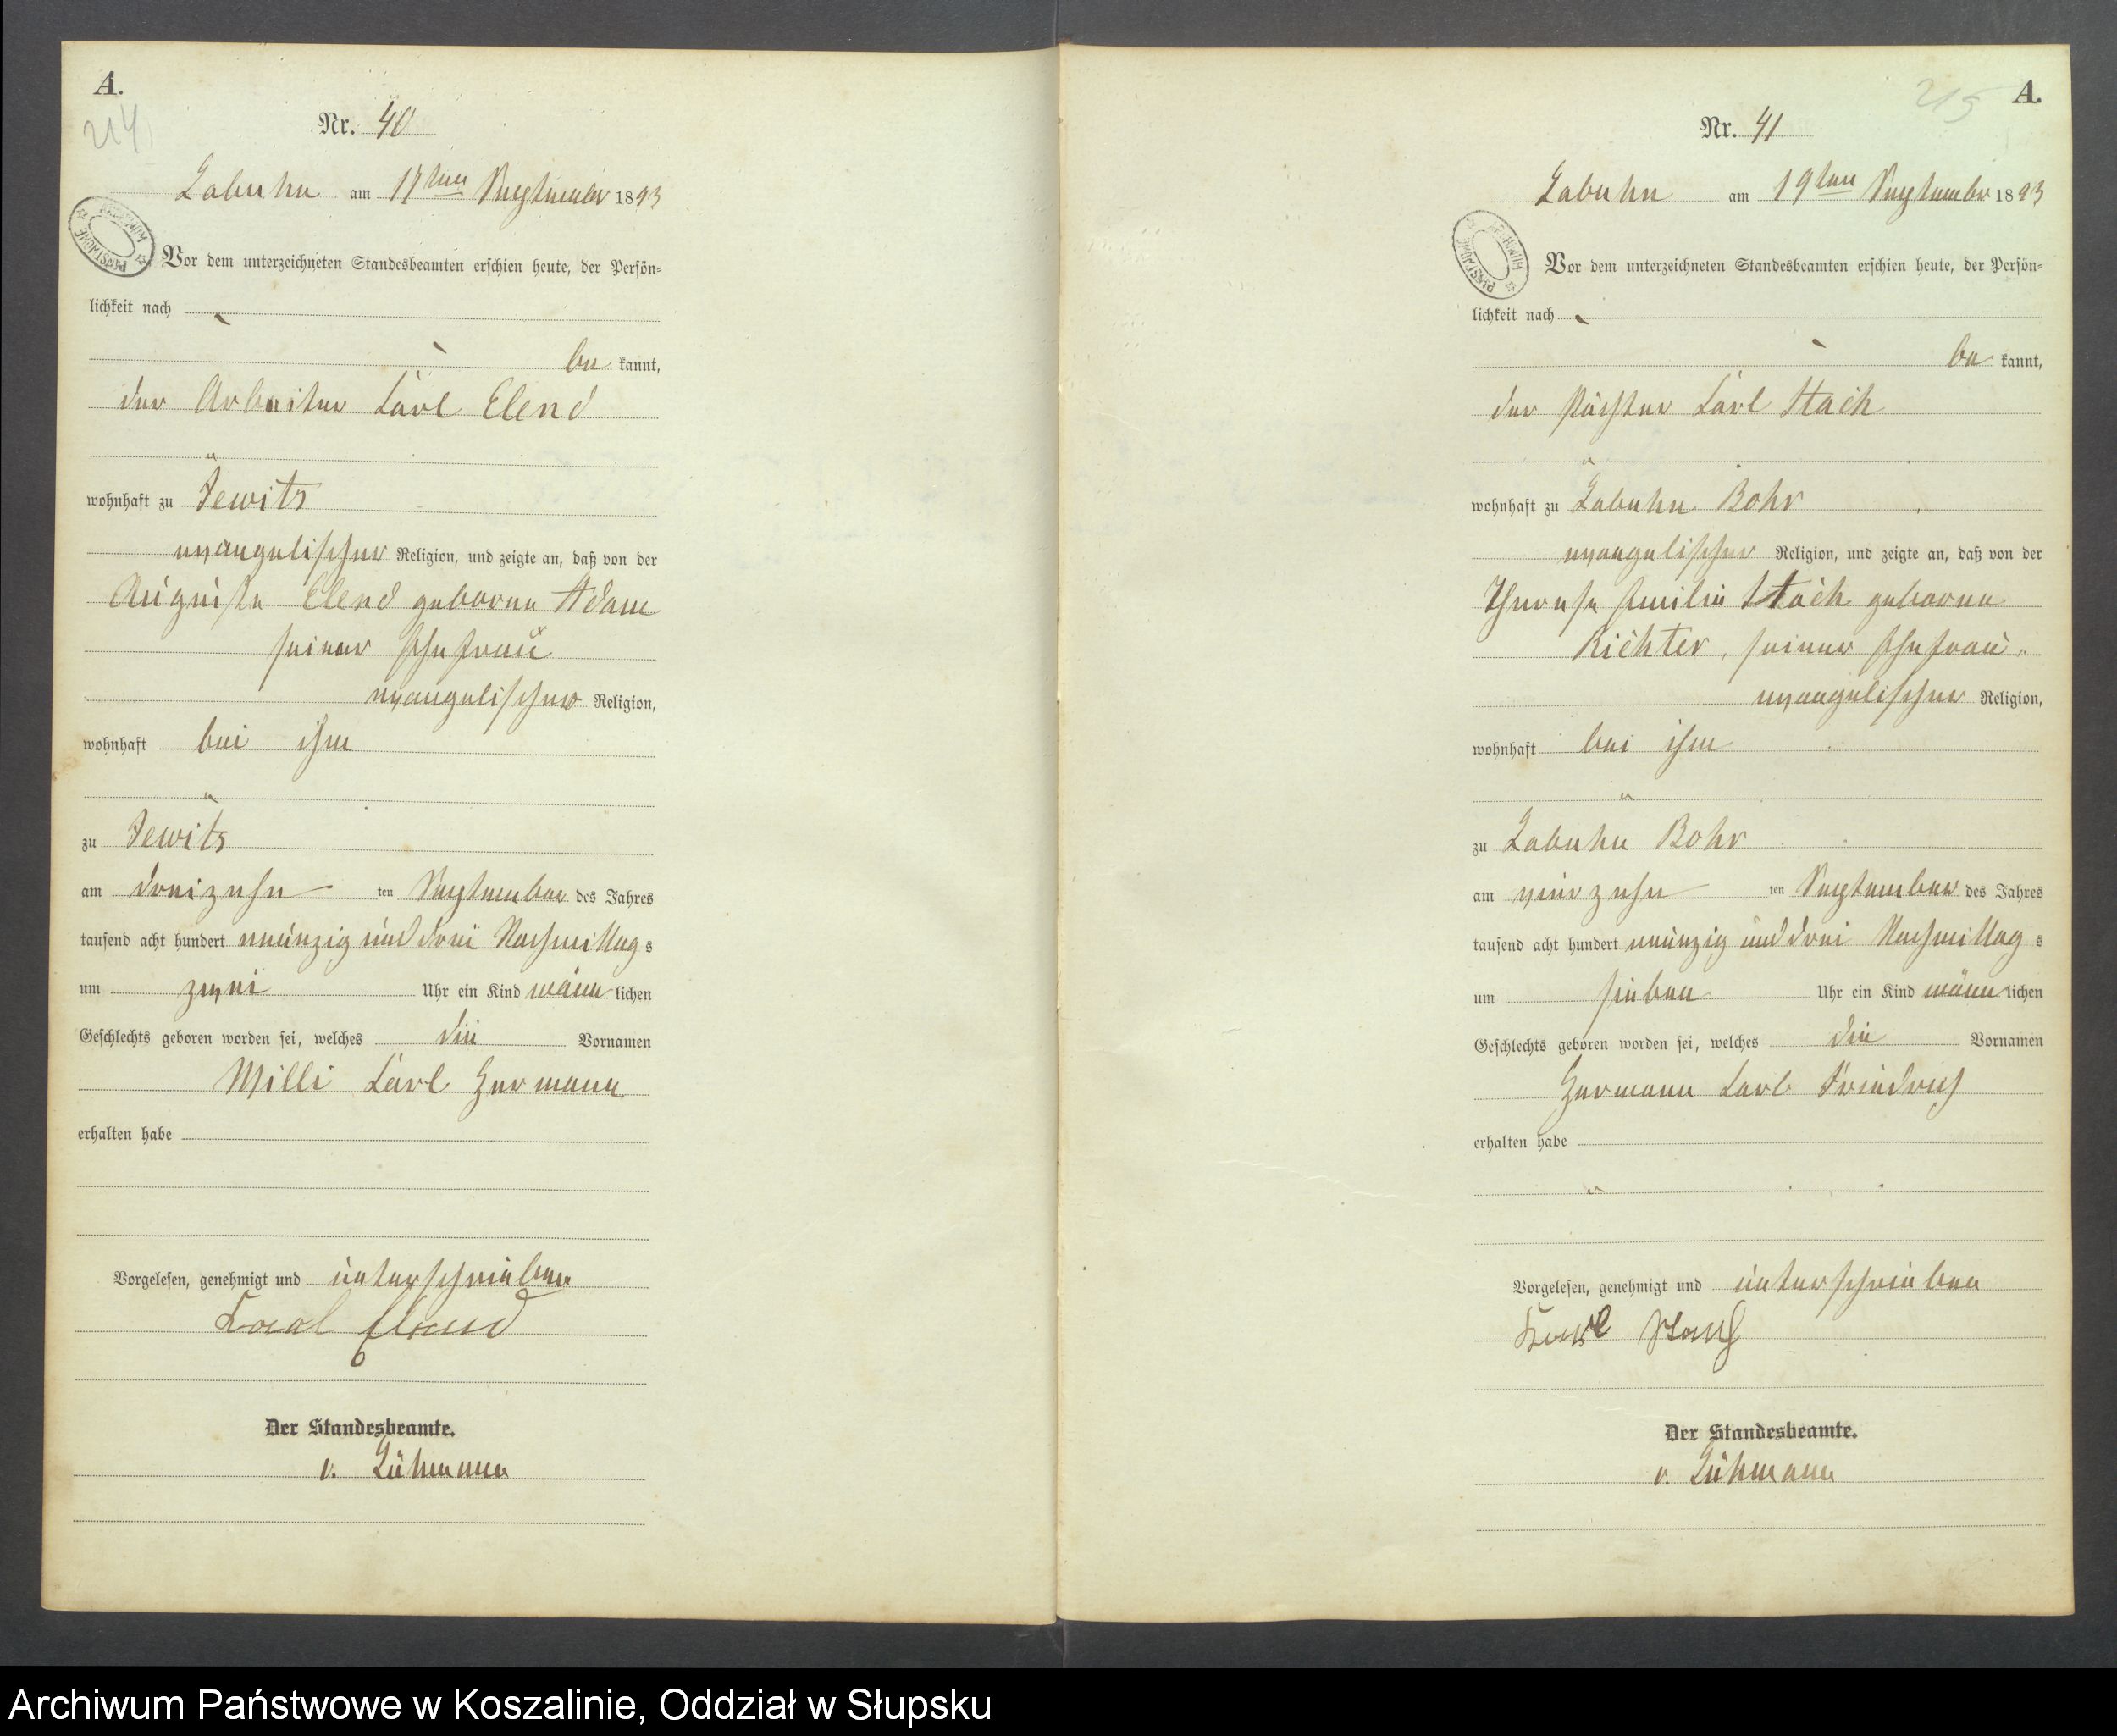 A.
214
Nr. 40
Labuhn am 17ten September 1893
Vor dem unterzeichneten Standesbeamten erschien heute, der Persön=
lichkeit nach
be kannt,
der Arbeiter Carl Elend
wohnhaft zu Jewitz
evangelischer Religion, und zeigte an, daß von der
Auguste Elend geborne Adam
seiner Ehefrau
evangelischer Religion,
wohnhaft bei ihm
zu Jewitz
am dreizehn ten September des Jahres
tausend acht hundert neunzig und drei Nachmittag s
um zwei Uhr ein Kind männ lichen
Geschlechts geboren worden sei, welches die Vornamen
Willi Carl Hermann
erhalten habe
Vorgelesen, genehmigt und unterschrieben
Karl Elend
Der Standesbeamte.
v. Lühmann
A.
215
Nr. 41
Labuhn am 19ten September 1893
Vor dem unterzeichneten Standesbeamten erschien heute, der Persön=
lichkeit nach
be kannt,
der Carl Stach
wohnhaft zu Labuhn Bohr
evangelischer Religion, und zeigte an, daß von der
Therese Emilie Stach geborne
Richter, seiner Ehefrau
evangelischer Religion,
wohnhaft bei ihm
zu Labuhn Bohr
am vierzehn ten September des Jahres
tausend acht hundert neunzig und drei Nachmittag s
um sieben Uhr ein Kind männ lichen
Geschlechts geboren worden sei, welches die Vornamen
Hermann Carl Friedrich
erhalten habe
Vorgelesen, genehmigt und unterschrieben
Karl Stach
Der Standesbeamte.
v. Lühmann
Archiwum Państwowe w Koszalinie, Oddział w Słupsku